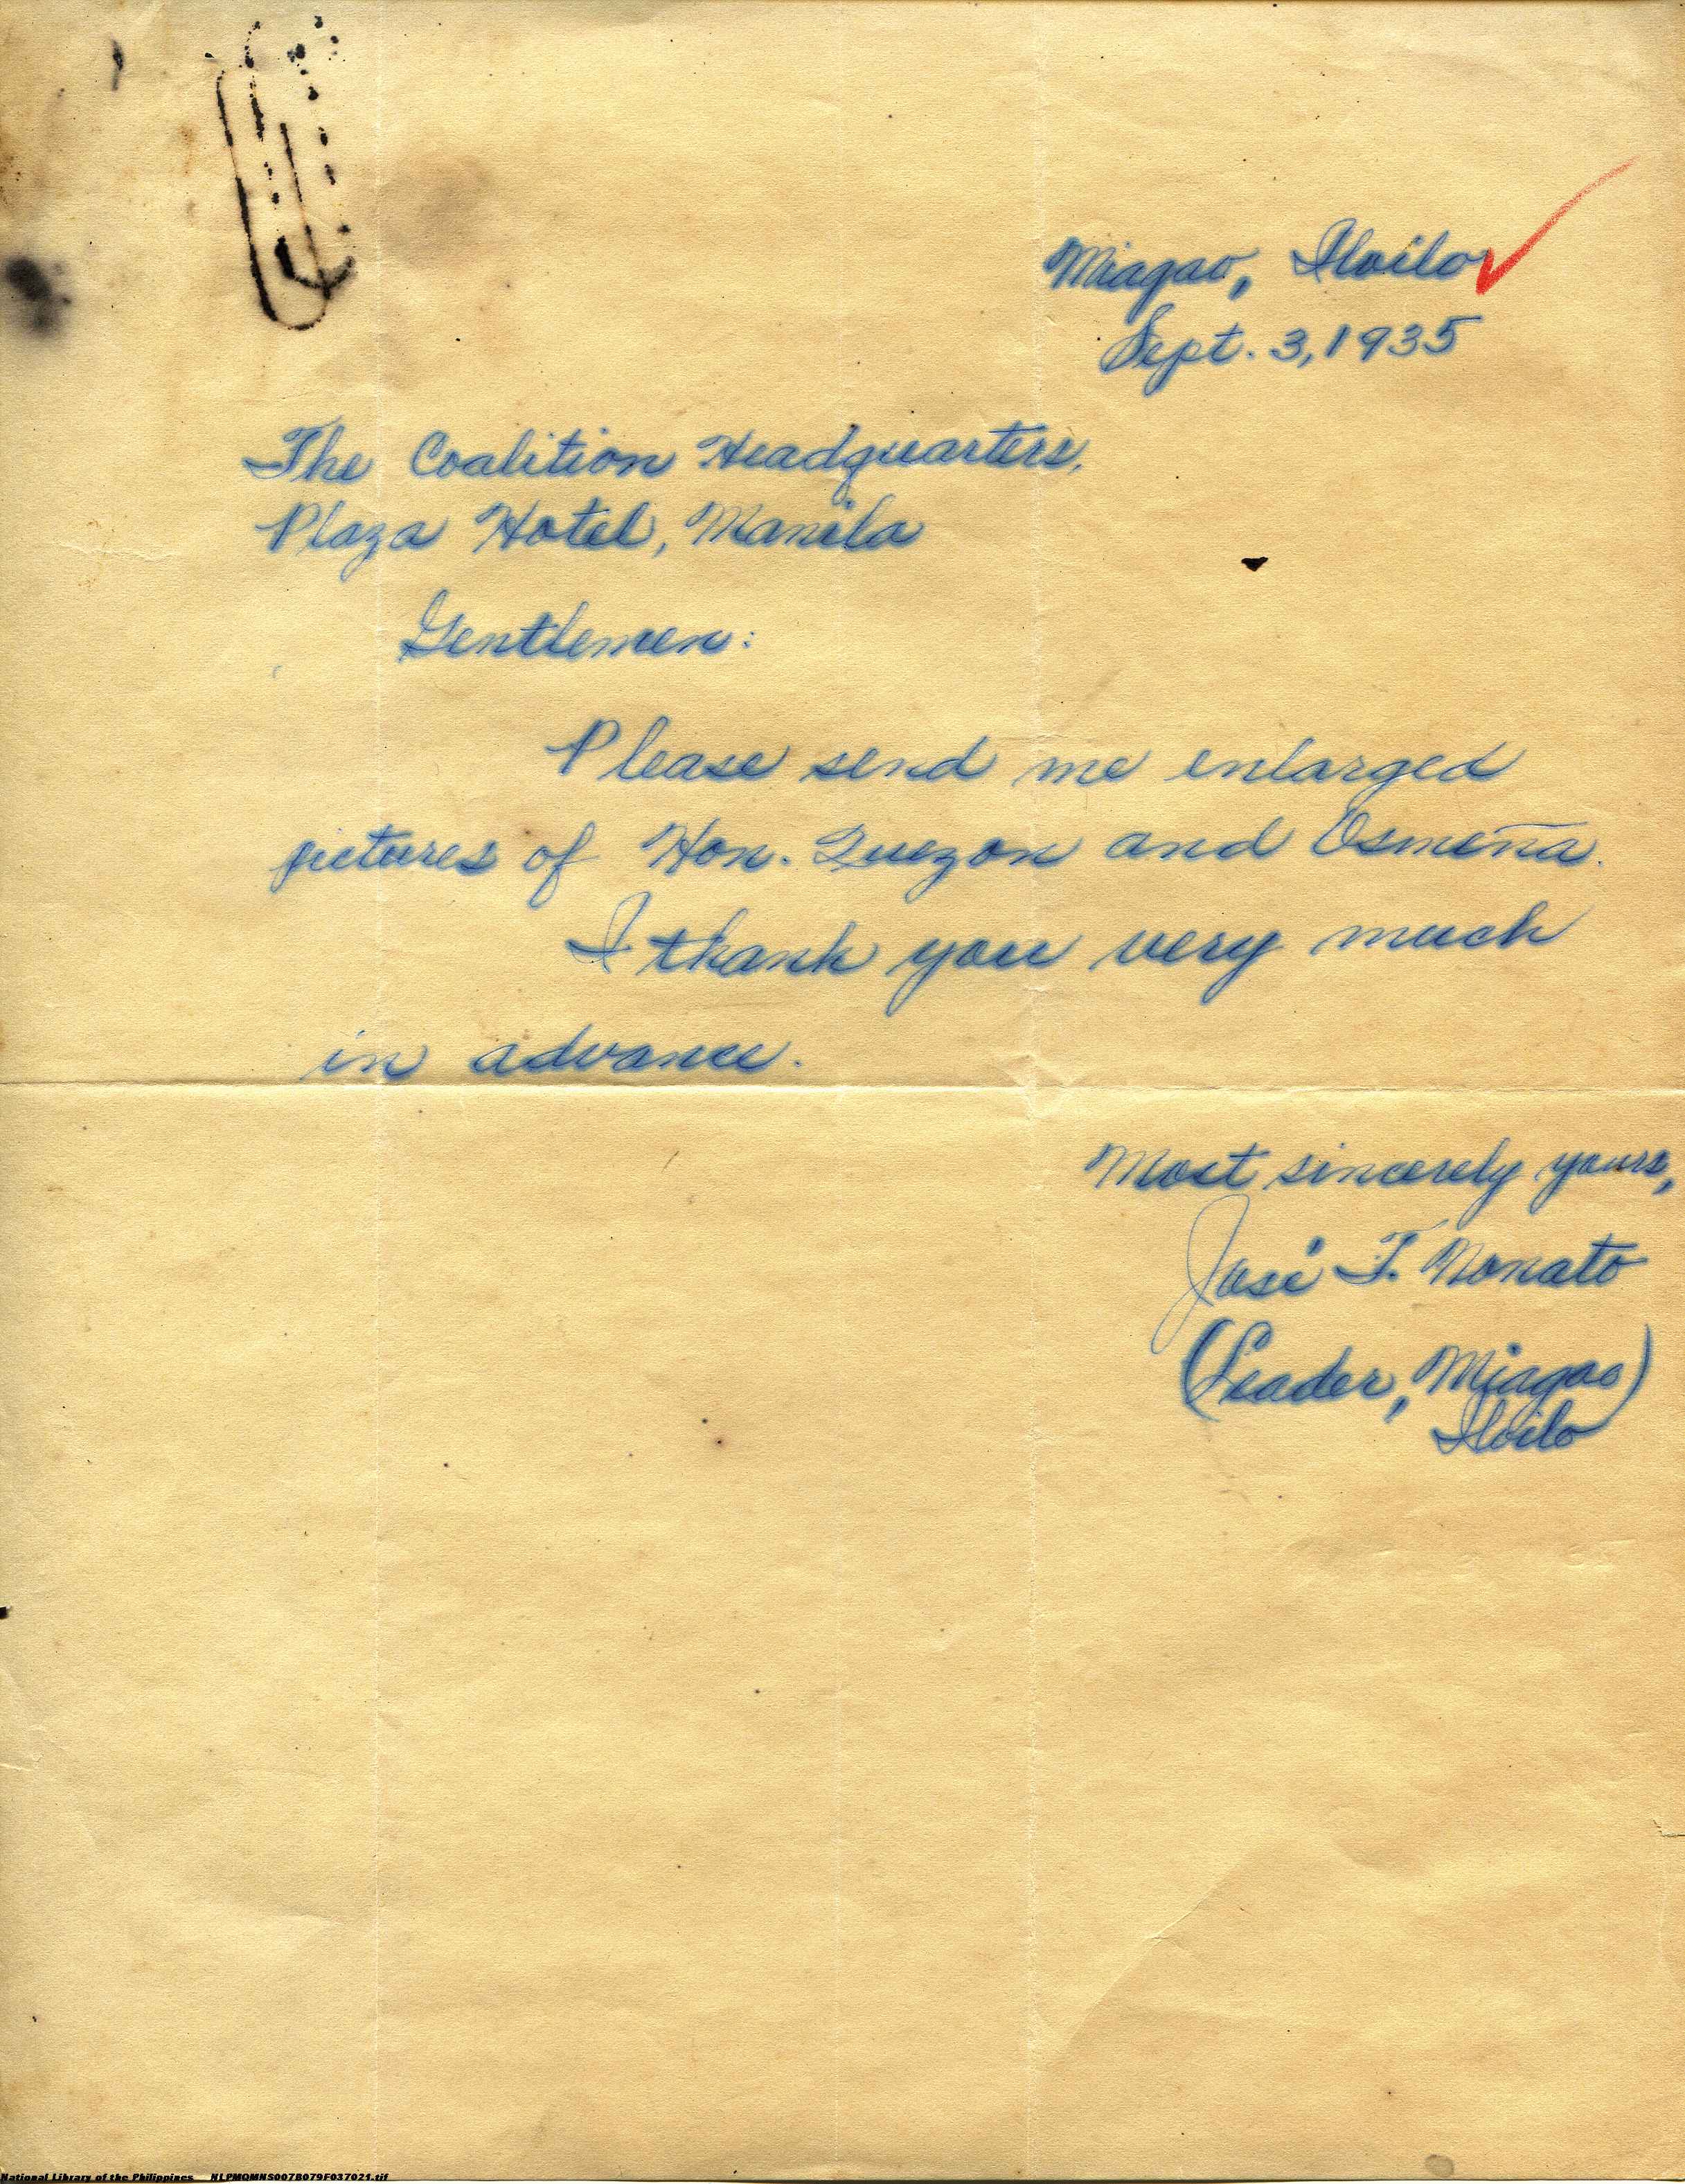 Miagao, Iloilo
Sept. 3, 1935
The Coalition Headquarters,
Plaza Hotel, Manila
Gentlemen:
Please send me enlarged
pictures of Hon. Quezon and Osmeña.
I thank you very much
in advance.
Most sincerely yours,
José T. Nonato
(Leader, Miagao)
Iloilo
National Library of the Philippines NLPMQMNS007B079F037021.tif